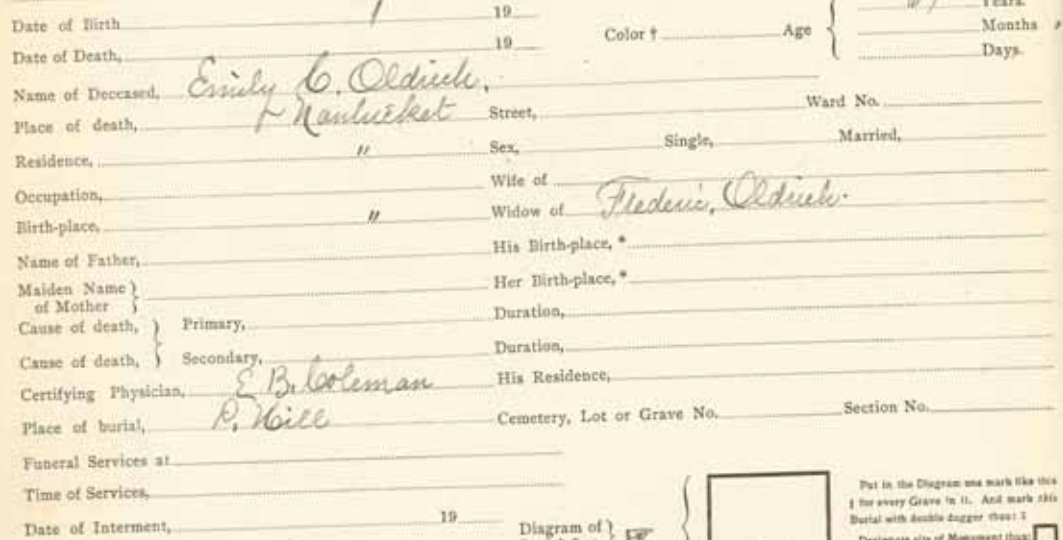 Date of Birth 19 Years.
Color † Age Months
Date of Death, 19 Days.
Name of Deceased, Emily C. Oldrich,
Place of death, Nantucket Street, Ward No.
Residence, " Sex, Single, Married,
Occupation, Wife of
Birth-place, " Widow of Frederic, Oldrich.
Name of Father, His Birth-place, *
Maiden Name of Mother Her Birth-place, *
Cause of death, Primary, Duration,
Cause of death, Secondary, Duration,
Certifying Physician, E B. Coleman His Residence,
Place of burial, P. Hill Cemetery, Lot or Grave No. Section No.
Funeral Services at
Time of Services,
Date of Interment, 19 Diagram of
Put in the Diagram one mark like this
| for every Grave in it. And mark this
Burial with double dagger thus: ‡
Designate site of Monument thus: